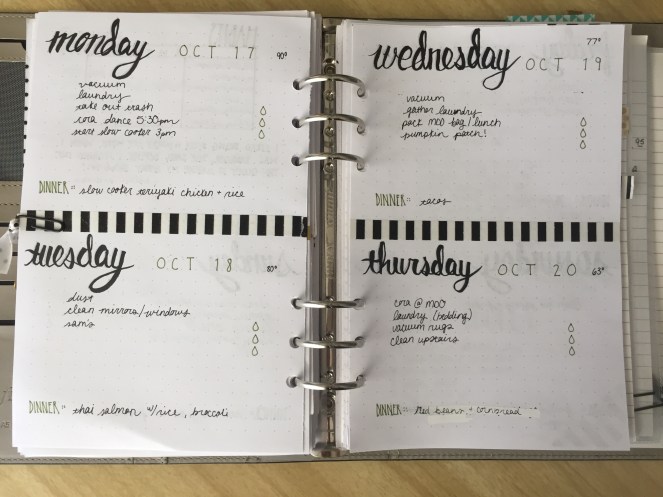 monday OCT 17 90°
vacuum
laundry
take out trash
cora dance 5:30pm
start slow cooker 3pm
DINNER: slow cooker teriyaki chicken + rice
tuesday OCT 18 80°
dust
clean mirrors/windows
sam's
DINNER: thai salmon w/rice, broccoli
wednesday OCT 19 77°
vacuum
gather laundry
pack MDO bag/lunch
pumpkin patch!
DINNER: tacos
thursday OCT 20 63°
cora @ MDO
laundry (bedding)
vacuum rugs
clean upstairs
DINNER: red beans + cornbread